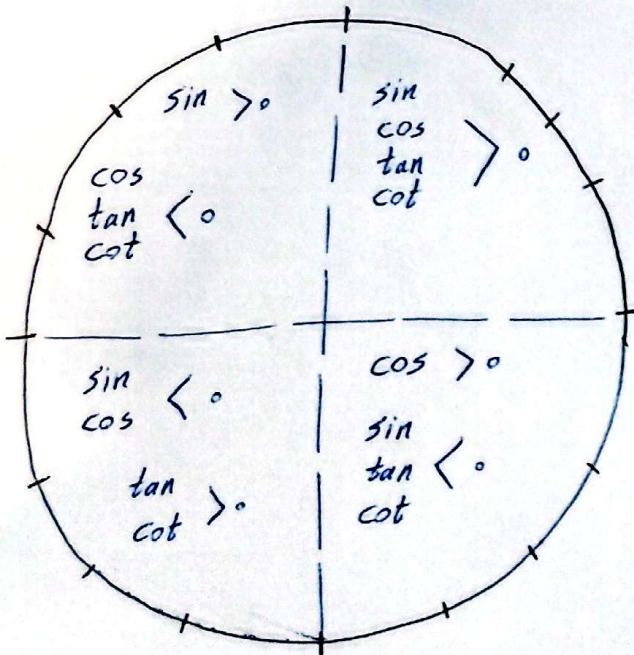 sin > 0
cos
tan < 0
cot
sin
cos
tan > 0
cot
sin
cos < 0
tan
cot > 0
cos > 0
sin
tan < 0
cot